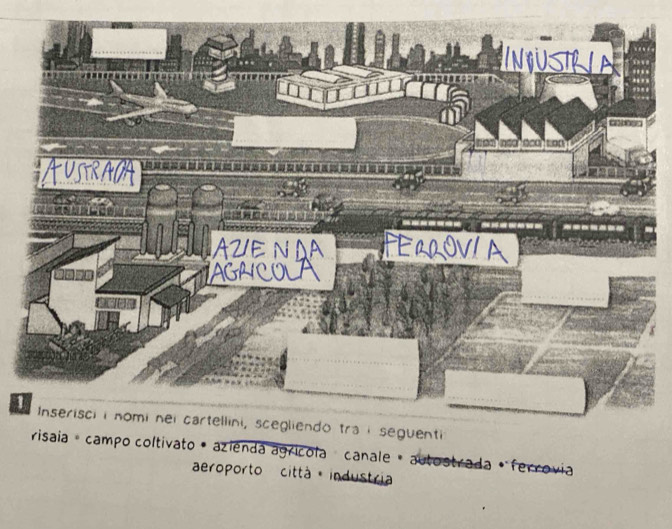 INDUSTRIA
AUSTRADA
AZIENDA
AGRICOLA
FERROVIA
1 Inserisci i nomi nei cartellini, scegliendo tra i seguenti:
risaia • campo coltivato • azienda agricola • canale • autostrada • ferrovia
aeroporto • città • industria